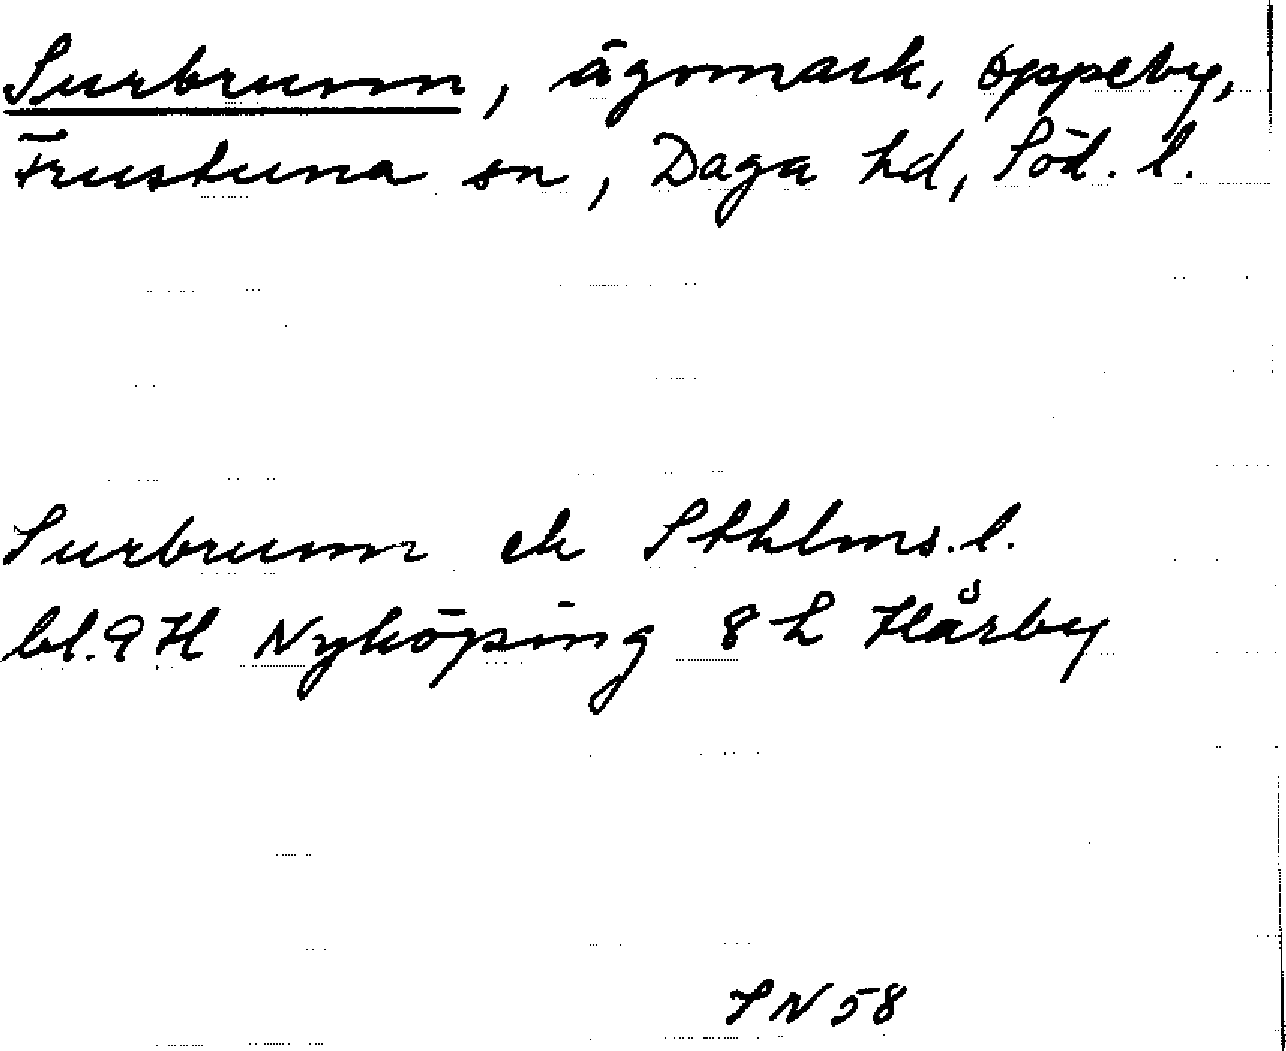 Surbrunn, ägomark, Öppeby,
Frustuna sn, Daga hd, Söd. l.
Surbrunn ek Sthlms. l.
bl. 9 H Nyköping 8 h Hårby
SN 58